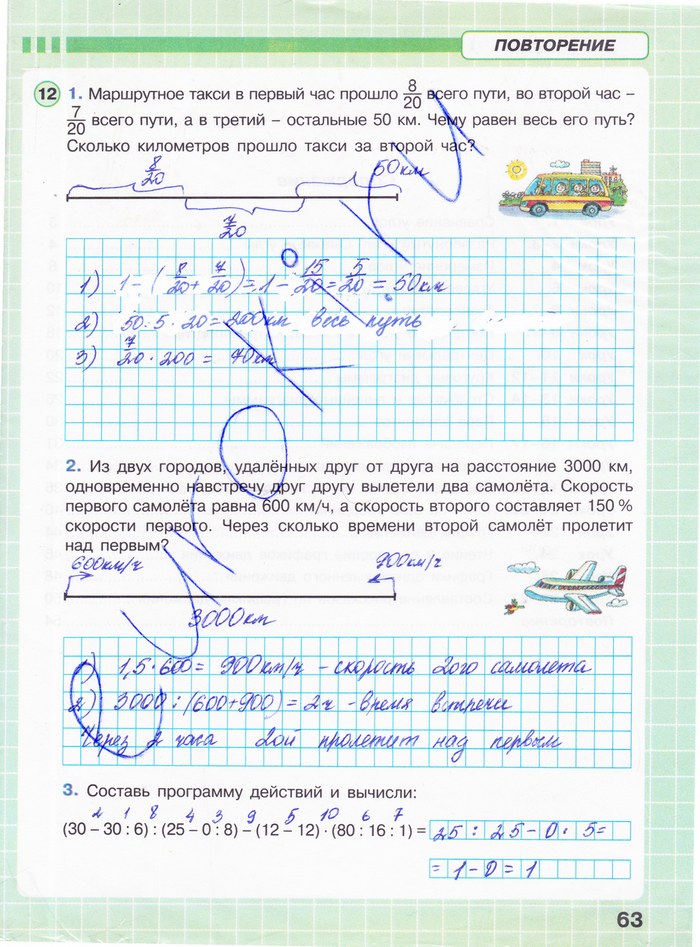 ПОВТОРЕНИЕ
12 1. Маршрутное такси в первый час прошло 8/20 всего пути, во второй час –
7/20 всего пути, а в третий – остальные 50 км. Чему равен весь его путь?
Сколько километров прошло такси за второй час?
8/20 50км
7/20
1) 1 - (8/20 + 7/20) = 1 - 15/20 = 5/20 = 50км
2) 50:5·20=200км весь путь
3) 7/20 · 200 = 70км
2. Из двух городов, удалённых друг от друга на расстояние 3000 км,
одновременно навстречу друг другу вылетели два самолёта. Скорость
первого самолёта равна 600 км/ч, а скорость второго составляет 150 %
скорости первого. Через сколько времени второй самолёт пролетит
над первым?
600км/ч 900км/ч
3000км
1) 1,5·600= 900км/ч - скорость 2ого самолета
2) 3000:(600+900)=2ч -время встречи
Через 2 часа 2ой пролетит над первым
3. Составь программу действий и вычисли:
2 1 8 4 3 9 5 10 6 7
(30 – 30 : 6) : (25 – 0 : 8) – (12 – 12) · (80 : 16 : 1) = 25 : 25 - 0 · 5 =
= 1 - 0 = 1
63